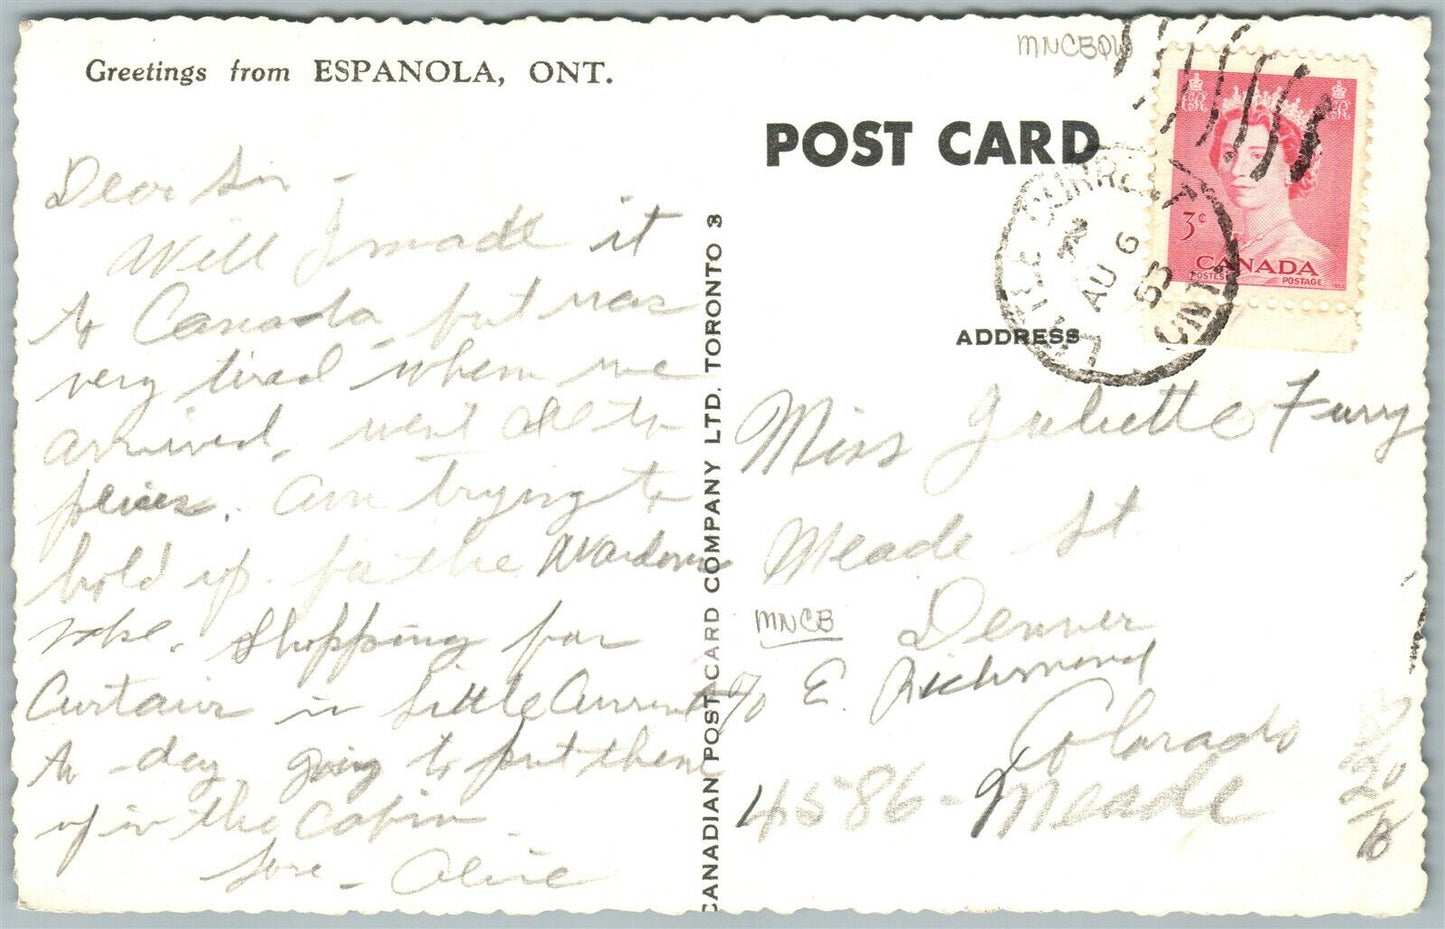 Greetings from ESPANOLA, ONT.
Dear Sir -
Will I made it
to Canada but was
very tired when we
arrived, went all to
pieces. Am trying to
hold up for the
sake. Shopping for
Curtains in Little Current
to-day going to put them
up in the Cabin.
Love - Olive
CANADIAN POST CARD COMPANY LTD. TORONTO 3
MNCEQW
POST CARD
ADDRESS
LITTLE CURRENT
AU 6
ONT
ER
ER
3c
CANADA
POSTES POSTAGE
Miss Juliette Furry
Meade St
MNCB
Denver
c/o E. Richmond
Colorado
4586 - Meade
20